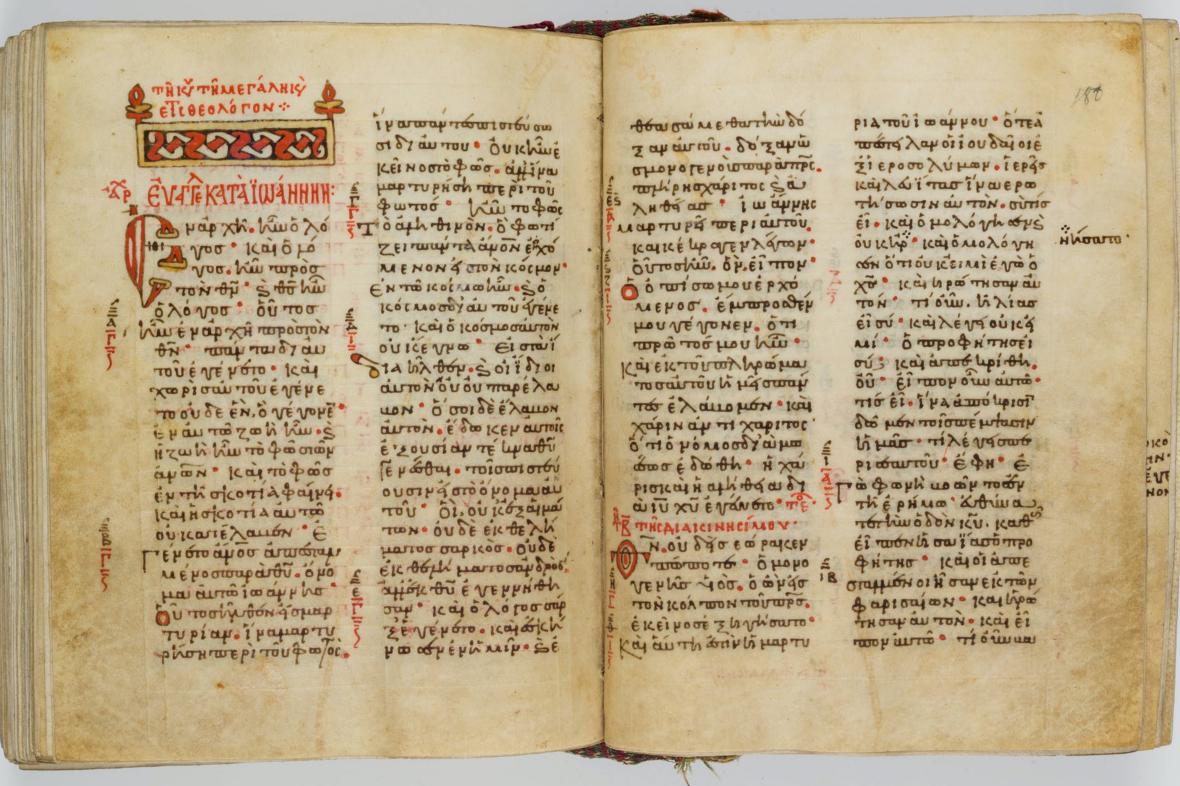 τῆ κυ τῆ μεγάλη κυ
εἰς τ θεολόγον
ΕΥΑΓΓΕ ΚΑΤΑ ΪΩΑΝΝΗΝ:
Εν ἀρχῆ ἦν ὁ λό
γος · καὶ ὁ λό
γος ἦν πρὸς
τὸν θν · κ θς ἦν
ὁ λόγος · οὗτος
ἦν ἐν ἀρχῆ πρὸς τὸν
θν · πάντα δι αυ
τοῦ ἐγένετο · καὶ
χωρὶς αυτοῦ ἐγένε
το οὐδὲ ἕν, ὃ γέγονε
ἐν αυτῶ ζωὴ ἦν · κ
ἡ ζωὴ ἦν τὸ φῶς τῶν
ἀνων · καὶ τὸ φῶς
ἐν τῆ σκοτία φαίνει
καὶ ἡ σκοτία αυτὸ
ου κατέλαβεν · Ε
γένετο ἄνος ἀπεσταλ
μένος παρὰ θυ · ὄνο
μα αυτῶ ἰωάννης
Οὗτος ἦλθεν εἰς μαρ
τυρίαν · ἵνα μαρτυ
ρήση περὶ τοῦ φωτός
ἵνα πάντες πιστεύσω
σι δι αυτοῦ · οὐκ ἦν ἐ
κεῖνος τὸ φῶς · ἀλλ ἵνα
μαρτυρήση περὶ τοῦ
φωτός · ἦν τὸ φῶς
Τὸ ἀληθινόν · ὃ φωτί
ζει πάντα ἄνον ἐρχό
μενον εἰς τὸν κόσμον
Εν τῶ κόσμω ἦν · κ ὁ
κόσμος δι αυτοῦ ἐγένε
το · καὶ ὁ κόσμος αυτὸν
ουκ ἔγνω · Εἰς τὰ ἴ
δια ἦλθεν · κ οἱ ἴδιοι
αυτὸν ου παρέλα
βον · ὅσοι δὲ ἔλαβον
αυτόν · ἔδωκεν αυτοῖς
ἐξουσίαν τέκνα θυ
γενέσθαι · τοῖς πιστεύ
ουσιν εἰς τὸ ὄνομα αυ
του · Οἳ ουκ ἐξ αιμά
των · οὐδὲ ἐκ θελή
ματος σαρκός · οὐδὲ
ἐκ θελήματος ανδρός
ἀλλ ἐκ θυ ἐγεννήθη
σαν · καὶ ὁ λόγος σὰρ
ξ ἐγένετο · καὶ ἐσκή
νωσεν ἐν ἡμῖν · κ ἐ
θεασάμεθα τὴν δό
ξαν αυτου · δόξαν ὡς
μονογενοῦς παρὰ πρς
πλήρης χάριτος κ ἀ
ληθείας · ἰωάννης
μαρτυρεῖ περὶ αυτοῦ
καὶ κέκραγεν λέγων
Οὗτος ἦν · ὃν εἶπον
ὁ ὀπίσω μου ἐρχό
μενος · ἔμπροσθέν
μου γέγονεν · ὅτι
πρῶτός μου ἦν
Καὶ ἐκ τοῦ πληρώμα
τος αυτοῦ ἡμεῖς πάν
τες ἐλάβομεν · καὶ
χάριν ἀντὶ χάριτος
Ὅτι ὁ νόμος διὰ μω
σέως ἐδόθη · ἡ χά
ρις καὶ ἡ αλήθεια δι
α ιυ χυ ἐγένετο · τε
τῆ Β τῆς διακινησίμου
Θν ουδεὶς ἑώρακεν
πώποτε · ὁ μονο
γενὴς υἱός · ὁ ὢν εἰς
τὸν κόλπον τοῦ πρς
ἐκεῖνος ἐξηγήσατο
Καὶ αὕτη ἐστὶν ἡ μαρτυ
ρία τοῦ ἰωάννου · ὅτε ἀ
πέστειλαν οἱ ἰουδαῖοι ἐ
ξ ιεροσολύμων · ἱερεῖς
καὶ λευίτας ἵνα ερω
τήσωσιν αυτόν · συ τίς
εἶ · καὶ ὡμολόγησε κ
ουκ ηρ · καὶ ὡμολόγη
σεν ὅτι ουκ εἰμὶ ἐγὼ ὁ
χς · καὶ ἠρώτησαν αυ
τόν · τί οὖν · ἠλίας
εἶ σύ · καὶ λέγει ουκ εἰ
μί · ὁ προφήτης εἶ
σύ · καὶ απεκρίθη
οὔ · εἶπον οὖν αυτῶ
τίς εἶ · ἵνα ἀπόκρισι
δῶμεν τοῖς πέμψασιν
ἡμᾶς · τί λέγεις πε
ρὶ σαυτοῦ · ἔφη · Ε
γὼ φωνὴ βοῶντος ἐν
τῆ ἐρήμω · εὐθύνα
τε τὴν ὁδὸν κυ · καθ
εἶπεν ἡσαΐας ὁ προ
φήτης · καὶ οἱ ἀπε
σταλμένοι ἦσαν ἐκ τῶν
φαρισαίων · καὶ ἠρώ
τησαν αυτόν · καὶ εἶ
πον αυτῶ · τί οὖν βα
ἠρνήσατο
188